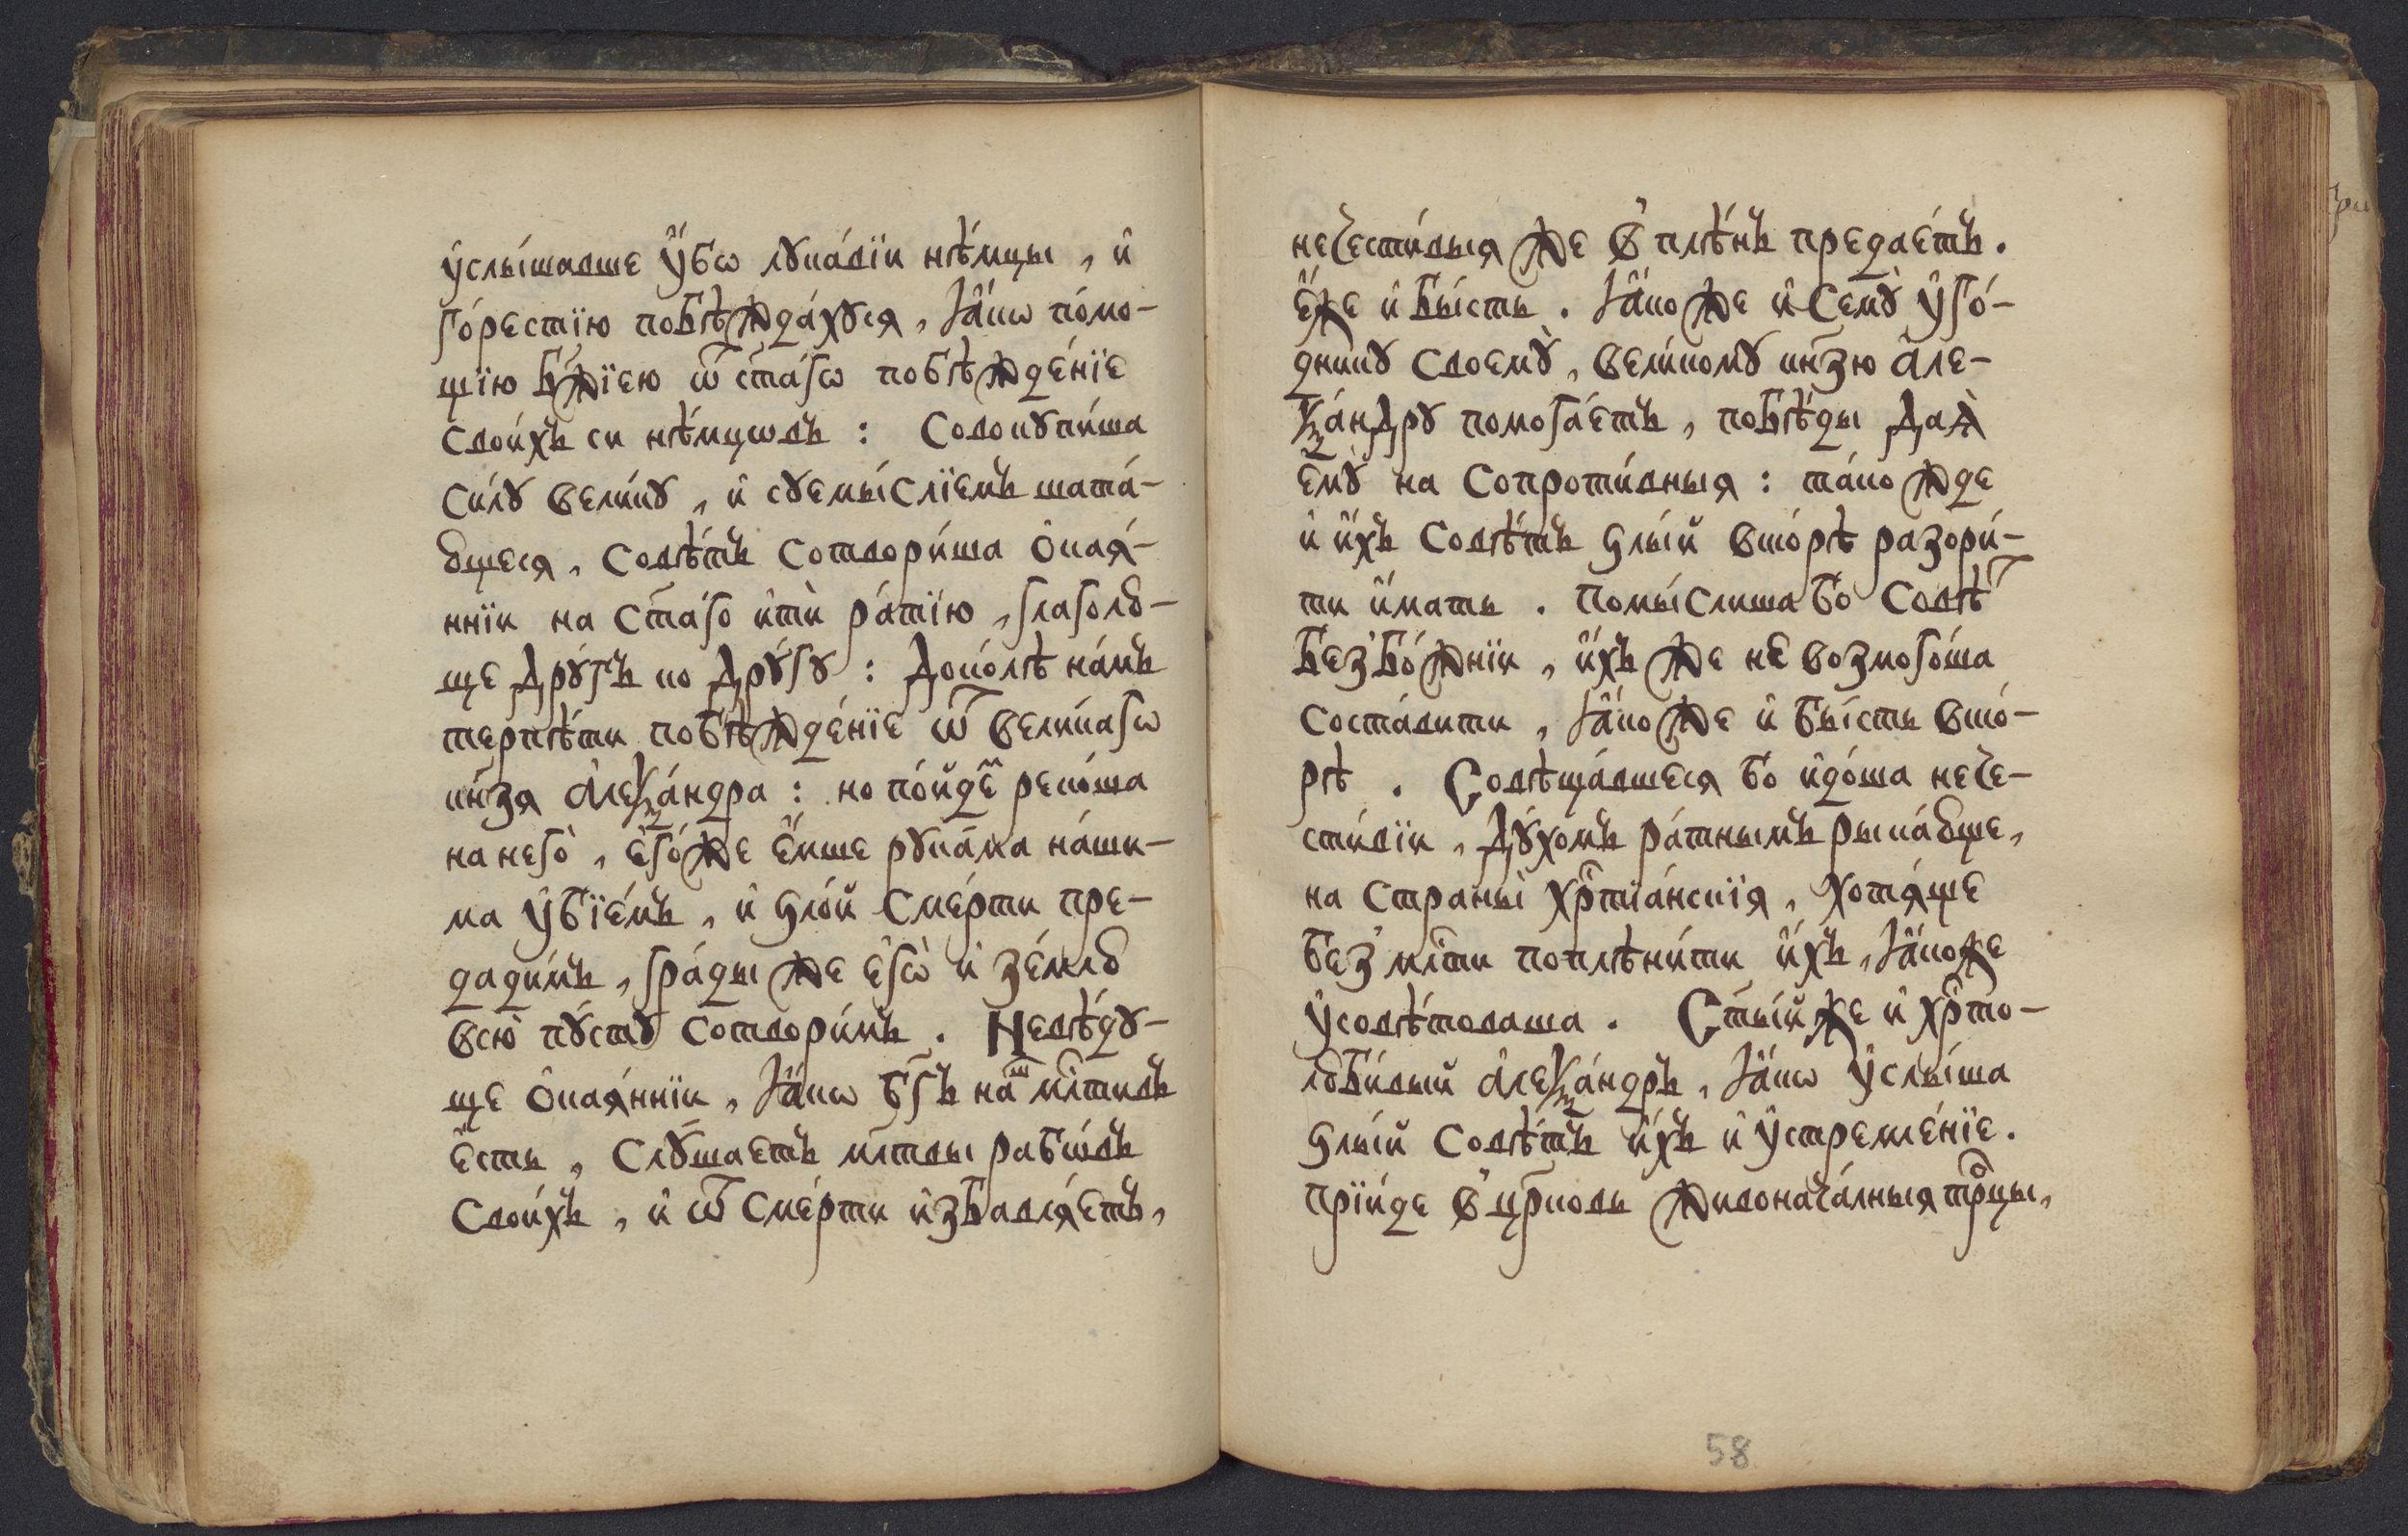 ᲂу҆слы́шавше ᲂу҆́бѡ лꙋка́вїи нѣ́мцы , и҆
го́рестїю побѣжда́хꙋсѧ , ꙗ҆́кѡ по́мо-
щїю бж҃їею ѿ ст҃а́гѡ побѣжде́нїе
свои́хъ си нѣ́мцѡвъ : Совокꙋпи́ша
си́лꙋ вели́кꙋ , и҆ сꙋемы́слїемъ шата́-
ющесѧ , совѣ́тъ сотвори́ша ѻ҆каѧ́-
ннїи на ст҃а́го и҆тѝ ра́тїю , глаголю-
ще дрꙋ́гъ ко дрꙋ́гꙋ : доко́лѣ на́мъ
терпѣ́ти побѣжде́нїе ѿ вели́кагѡ
кн҃зѧ а҆леѯа́ндра : но по́йдеⷨ реко́ша
на него̀ , є҆го́же є҆́мше рꙋка́ма на́ши-
ма ᲂу҆бїе́мъ , и҆ ѕло́й сме́рти пре-
дади́мъ , гра́ды же є҆гѡ̀ и҆ зе́млю
всю̀ пꙋ́стꙋ сотвори́мъ . Невѣ́дꙋ-
ще ѻ҆каѧ́ннїи , ꙗ҆́кѡ бг҃ъ на́ⷲ млⷭ҇тивъ
є҆́сть , слꙋ́шаетъ мл҃твы рабѡ́въ
свои́хъ , и҆ ѿ сме́рти и҆збавлѧ́етъ ,
нечести́выѧ же в̾ плѣ́нъ предае́тъ .
є҆́же и҆ бы́сть . ꙗ҆́коже и҆ семꙋ̀ ᲂу҆го́-
дникꙋ своемꙋ̀ , вели́комꙋ кн҃зю а҆ле-
ѯа́ндрꙋ помога́етъ , побѣ́ды даѧ̀
є҆мꙋ̀ на сопроти́вныѧ : та́кожде
и҆ и҆́хъ совѣ́тъ ѕлы́й вто́рѣ разори́-
ти и҆́мать . помы́слиша бо совѣⷮ
без̾бо́жнїи , и҆́хъ же не возмого́ша
соста́вити , ꙗ҆́коже и҆ бы́сть вто́-
рѣ . Совѣща́вшесѧ бо и҆до́ша нече-
сти́вїи , дꙋ́хомъ ра́тнымъ рыка́юще ,
на страны̀ хрⷭ҇тїа́нскїѧ , хотѧ́ще
без̾ млⷭ҇ти поплѣни́ти и҆́хъ , ꙗ҆́коже
ᲂу҆совѣ́товаша . Ст҃ы́й же и҆ хрⷭ҇то-
люби́вый а҆леѯа́ндръ , ꙗ҆́кѡ ᲂу҆слы́ша
ѕлы́й совѣ́тъ и҆́хъ и҆ ᲂу҆стремле́нїе .
прїи́де в̾ цр҃ковь живонача́лныѧ трⷪ҇цы ,
58